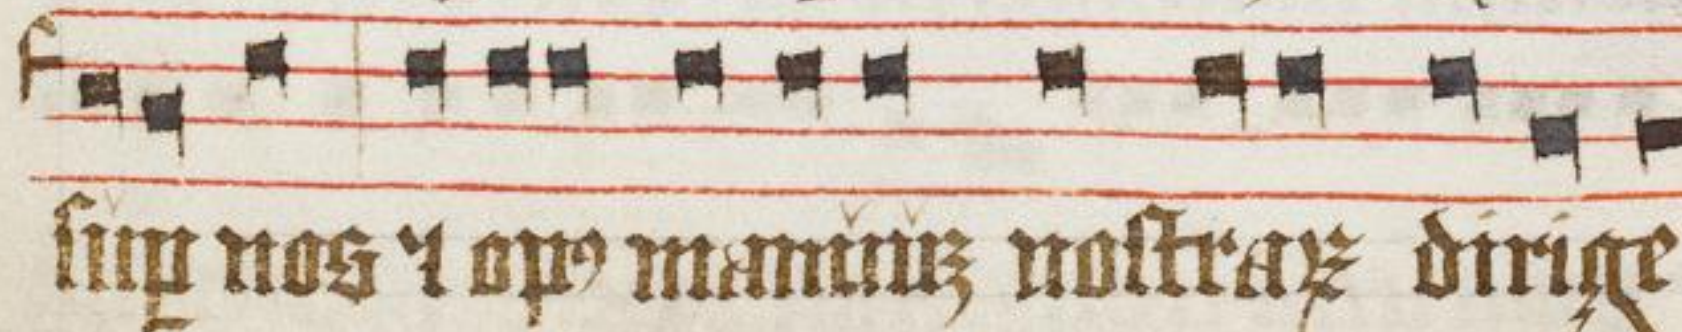 ſuꝑ nos ⁊ opꝰ manuuꝫ noſtraꝝ dirige